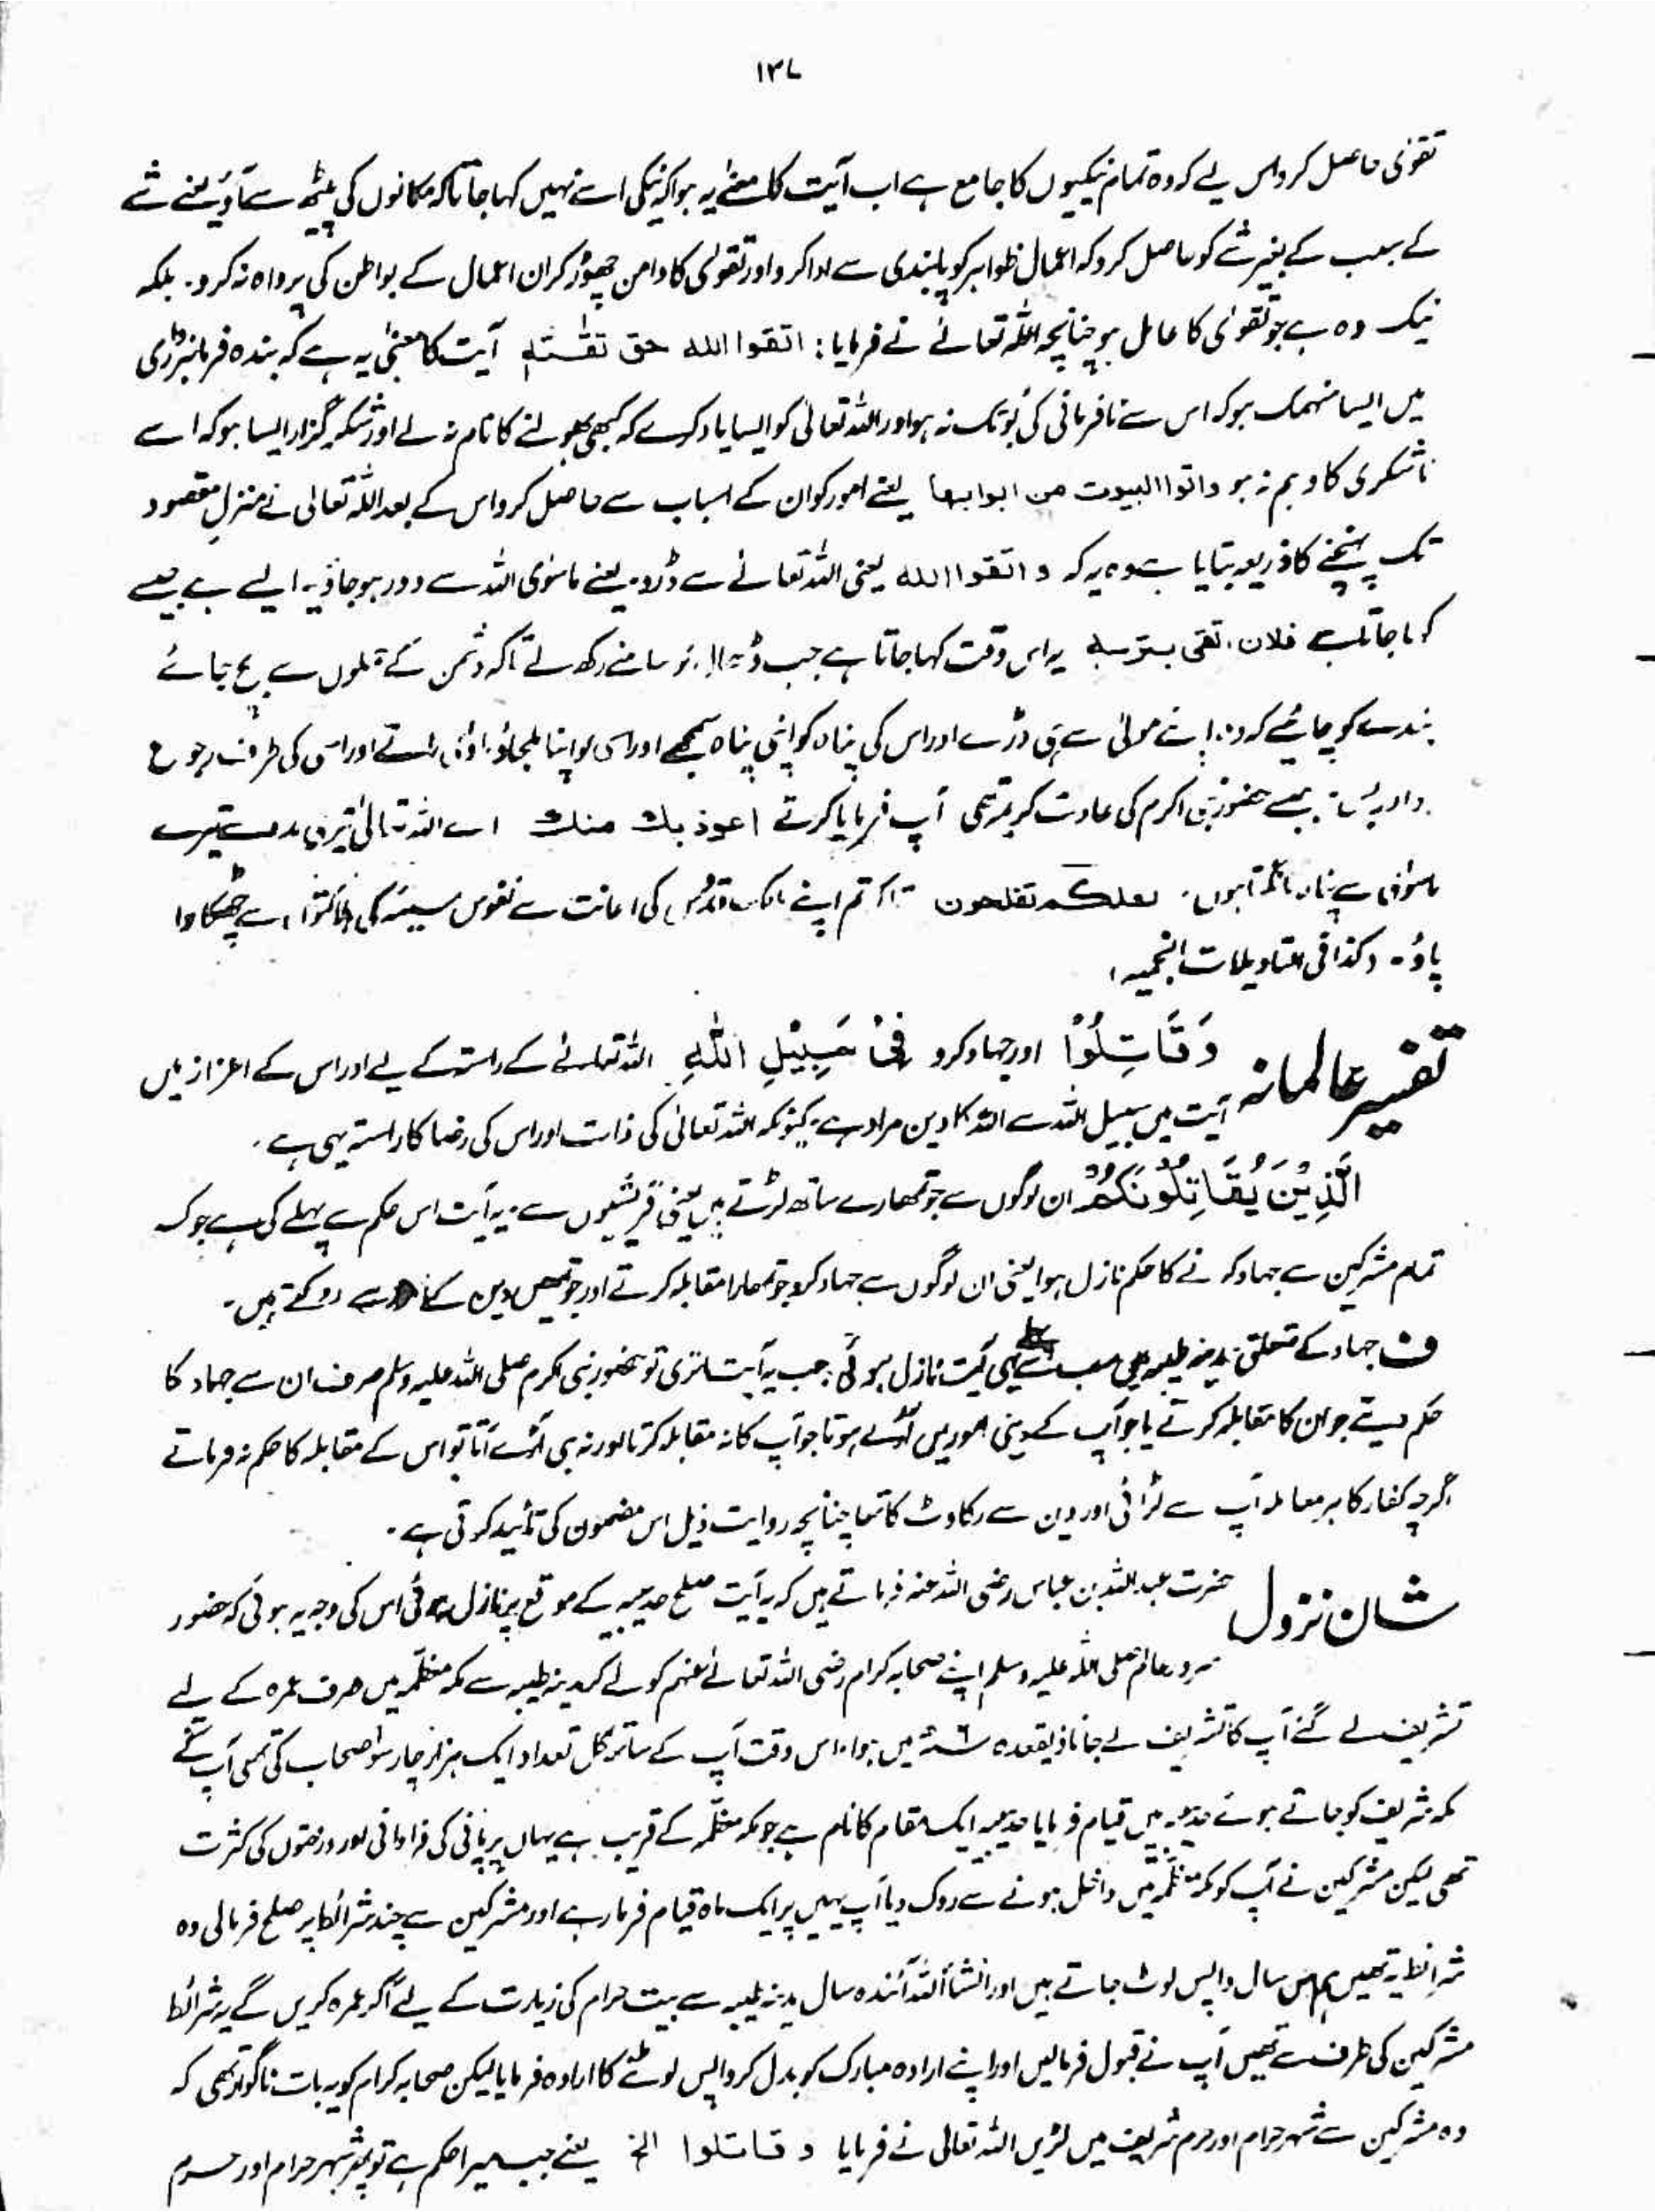 ١٣٧
تقوٰی حاصل کرو اس لیے کہ وہ تمام نیکیوں کا جامع ہے اب آیت کا معنے یہ ہوا کہ نیکی اسے نہیں کہا جاتا کہ مکانوں کی پیٹھ سے آؤ یعنے شے
کے سبب کے بغیر شے کو حاصل کرو کہ اعمال ظواہر کو پابندی سے ادا کرو اور تقوٰی کا دامن چھوڑ کر ان اعمال کے بواطن کی پرواہ نہ کرو۔ بلکہ
نیک وہ ہے جو تقوٰی کا عامل ہو چنانچہ اللہ تعالےٰ نے فرمایا: اتقوا الله حق تقٰته آیت کا معنیٰ یہ ہے کہ بندہ فرمانبرداری
میں ایسا منہمک ہو کہ اس سے نافرمانی کی بُو تک نہ ہو اور اللہ تعالیٰ کو ایسا یاد کرے کہ کبھی بھولنے کا نام نہ لے اور شکر گزار ایسا ہو کہ اسے
ناشکری کا وہم نہ ہو واتوا البیوت من ابوابها یعنے امور کو ان کے اسباب سے حاصل کرو اس کے بعد اللہ تعالیٰ نے منزلِ مقصود
تک پہنچنے کا ذریعہ بتایا ہے وہ یہ کہ و اتقوا الله یعنی اللہ تعالےٰ سے ڈرو۔ یعنے ماسوٰی اللہ سے دور ہو جاؤ یہ ایسے ہے جیسے
کہا جاتا ہے فلان، تقی بترسه یہ اس وقت کہا جاتا ہے جب ڈھال کو سامنے رکھ لے تاکہ دشمن کے حملوں سے بچ جائے
بندے کو چاہئیے کہ وہ اپنے مولیٰ سے ہی ڈرے اور اس کی پناہ کو اپنی پناہ سمجھے اور اسی کو اپنا ملجا و ماوٰی مانے اور اسی کی طرف رجوع
جیسے حضور نبی اکرم کی عادت کریمہ تھی آپ فرمایا کرتے اعوذ بك منك اے اللہ تعالیٰ تیری مدد سے تیرے
ماسوٰی سے پناہ مانگتا ہوں۔ لعلکم تفلحون تاکہ تم اپنے مالک قدوس کی اعانت سے نفوس سیئہ کی سے چھٹکارا
پاؤ۔ (کذا فی التاویلات النجمیہ)
تفسیر عالمانہ وَقَاتِلُوْا اور جہاد کرو فِیْ سَبِیْلِ اللّٰهِ اللہ تعالےٰ کے راستہ کے لیے اور اس کے اعزاز میں
آیت میں سبیل اللہ سے اللہ کا دین مراد ہے۔ کیونکہ اللہ تعالیٰ کی ذات اور اس کی رضا کا راستہ یہی ہے۔
الَّذِیْنَ یُقَاتِلُوْنَكُمْ ان لوگوں سے جو تمہارے ساتھ لڑتے ہیں یعنی قریشیوں سے۔ یہ آیت اس حکم سے پہلے کی ہے جو کہ
تمام مشرکین سے جہاد کرنے کا حکم نازل ہوا یعنی ان لوگوں سے جہاد کرو جو تمہارا مقابلہ کرتے اور جو تمہیں دین کے سے روکتے ہیں۔
ف جہاد کے متعلق مدینہ طیبہ میں سب سے یہی آیت نازل ہوئی۔ جب یہ آیت اتری تو حضور نبی اکرم صلی اللہ علیہ وسلم صرف ان سے جہاد کا
حکم دیتے جو ان کا مقابلہ کرتے یا جو آپ کے دینی امور میں آڑے ہوتا جو آپ کا نہ مقابلہ کرتا اور نہ ہی آڑے آتا تو اس کے مقابلہ کا حکم نہ فرماتے
اگرچہ کفار کا ہر معاملہ آپ سے لڑائی اور دین سے رکاوٹ کا تھا چنانچہ روایت ذیل اس مضمون کی تائید کرتی ہے۔
شان نزول حضرت عبد اللہ بن عباس رضی اللہ عنہ فرماتے ہیں کہ یہ آیت صلح حدیبیہ کے موقع پر نازل ہوئی اس کی وجہ یہ ہوئی کہ حضور
سرور عالم صلی اللہ علیہ وسلم اپنے صحابہ کرام رضی اللہ تعالےٰ عنہم کو لے کر مدینہ طیبہ سے مکہ معظمہ میں صرف عمرہ کے لیے
تشریف لے گئے آپ کا تشریف لے جانا ذیقعدہ ٦ھ میں ہوا۔ اس وقت آپ کے ساتھ کل تعداد ایک ہزار چار سو اصحاب کی تھی آپ نے
مکہ شریف کو جاتے ہوئے حدیبیہ میں قیام فرمایا حدیبیہ ایک مقام کا نام ہے جو مکہ معظمہ کے قریب ہے یہاں پر پانی کی فراوانی اور درختوں کی کثرت
تھی لیکن مشرکین نے آپ کو مکہ معظمہ میں داخل ہونے سے روک دیا آپ یہیں پر ایک ماہ قیام فرما رہے اور مشرکین سے چند شرائط پر صلح فرمالی وہ
شرائط یہ تھیں ہم اس سال واپس لوٹ جاتے ہیں اور انشاءاللہ آئندہ سال مدینہ طیبہ سے بیت حرام کی زیارت کے لیے آ کر عمرہ کریں گے یہ شرائط
مشرکین کی طرف سے تھیں آپ نے قبول فرمالیں اور اپنے ارادہ مبارک کو بدل کر واپس لوٹنے کا ارادہ فرمایا لیکن صحابہ کرام کو یہ بات ناگوار تھی کہ
وہ مشرکین سے شہر حرام اور حرم شریف میں لڑیں اللہ تعالیٰ نے فرمایا و قاتلوا الخ یعنے جب میرا حکم ہے تو پھر شہر حرام اور حرم